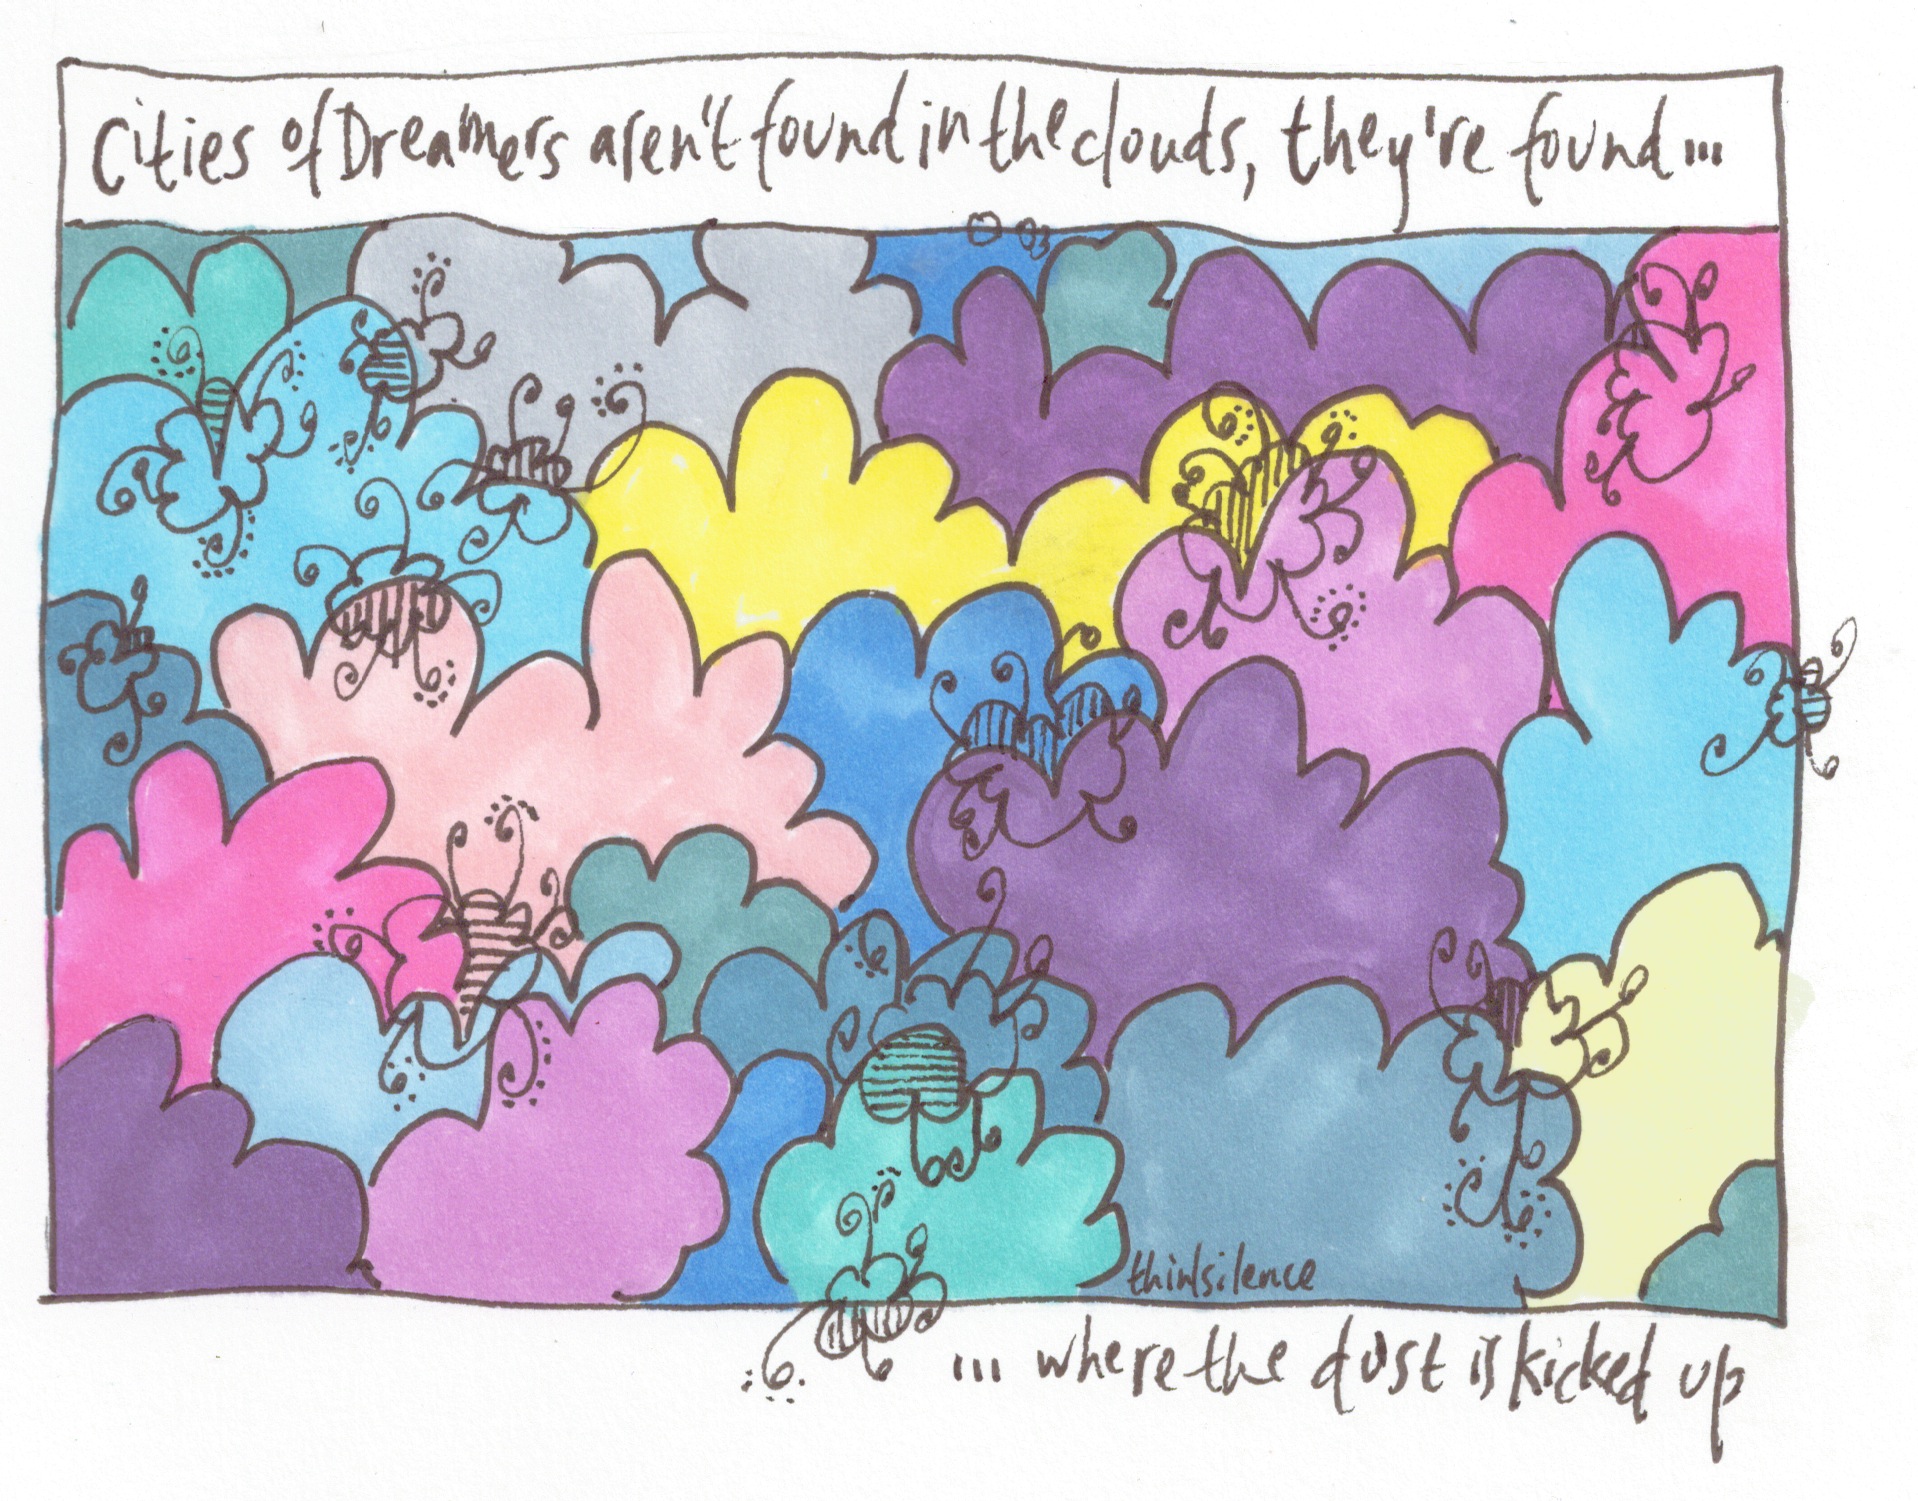 Cities of Dreamers aren't found in the clouds, they're found...
thinsilence
... where the dust is kicked up